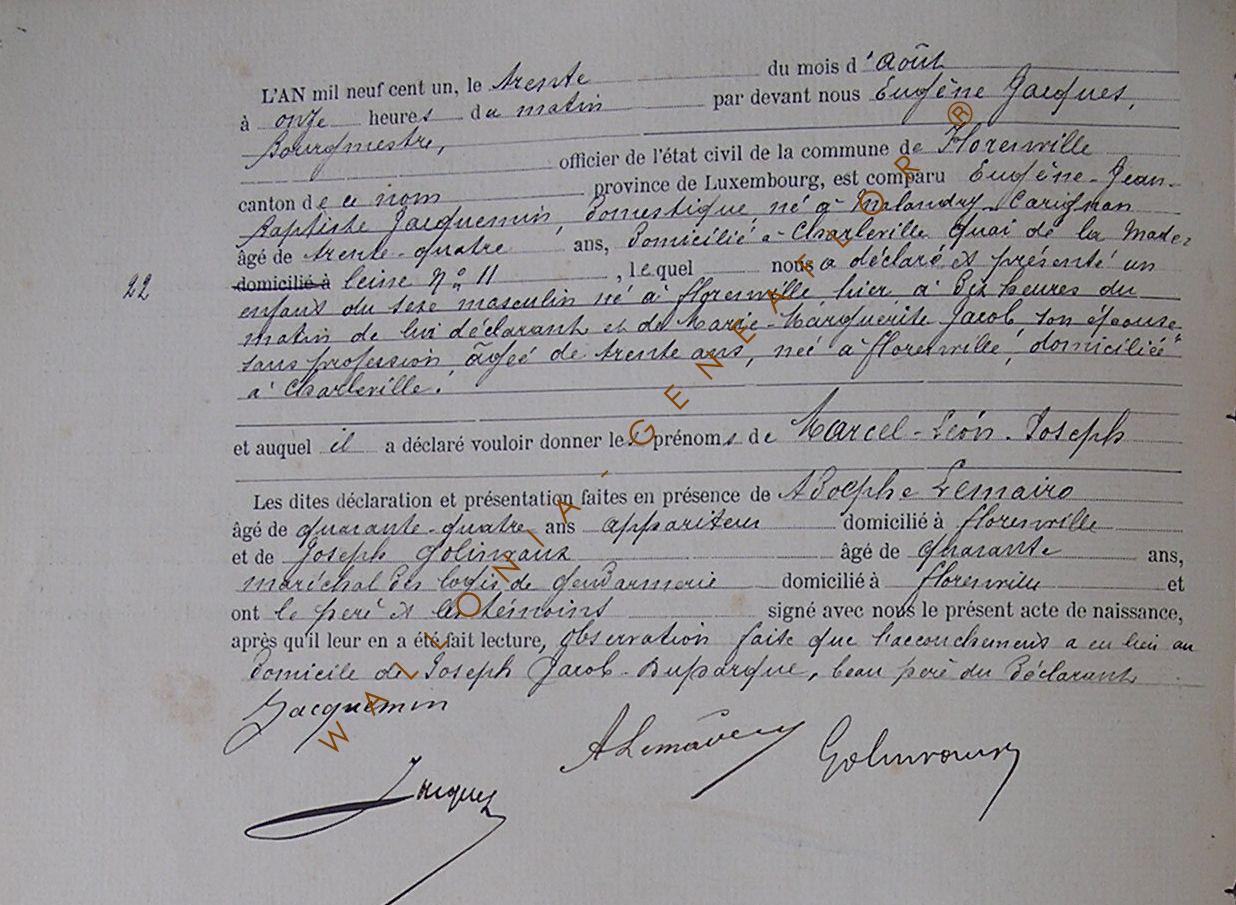 L'AN mil neuf cent un, le trente du mois d'août
à onze heures du matin par devant nous Eugène Jacques,
Bourgmestre,
officier de l'état civil de la commune de Florenville
canton de ce nom province de Luxembourg, est comparu Eugène-Jean-
Baptiste Jacquemin, Domestique, né à Malandry-Carignan
âgé de trente-quatre ans, Domicilié à Charleville Quai de la Made-
22 domicilié à leine N° 11, lequel nous a déclaré et présenté un
enfant du sexe masculin né à Florenville, hier à Dix heures du
matin de lui déclarant et de Marie-Marguerite Jacob, son épouse,
sans profession, âgée de trente ans, née à Florenville, domiciliée
à Charleville.
et auquel il a déclaré vouloir donner les prénoms de Marcel-Léon-Joseph
Les dites déclaration et présentation faites en présence de Adolphe Lemaire
âgé de quarante-quatre ans appariteur domicilié à Florenville
et de Joseph Golinvaux âgé de quarante ans,
maréchal des logis de gendarmerie domicilié à Florenville et
ont le père et les témoins signé avec nous le présent acte de naissance,
après qu'il leur en a été fait lecture, observation faite que l'accouchement a eu lieu au
Domicile de Joseph Jacob-Duparque, beau père du Déclarant
Jacquemin
ALemaire Golinvaux
Jacques
WALLONIA-GENEALOR®